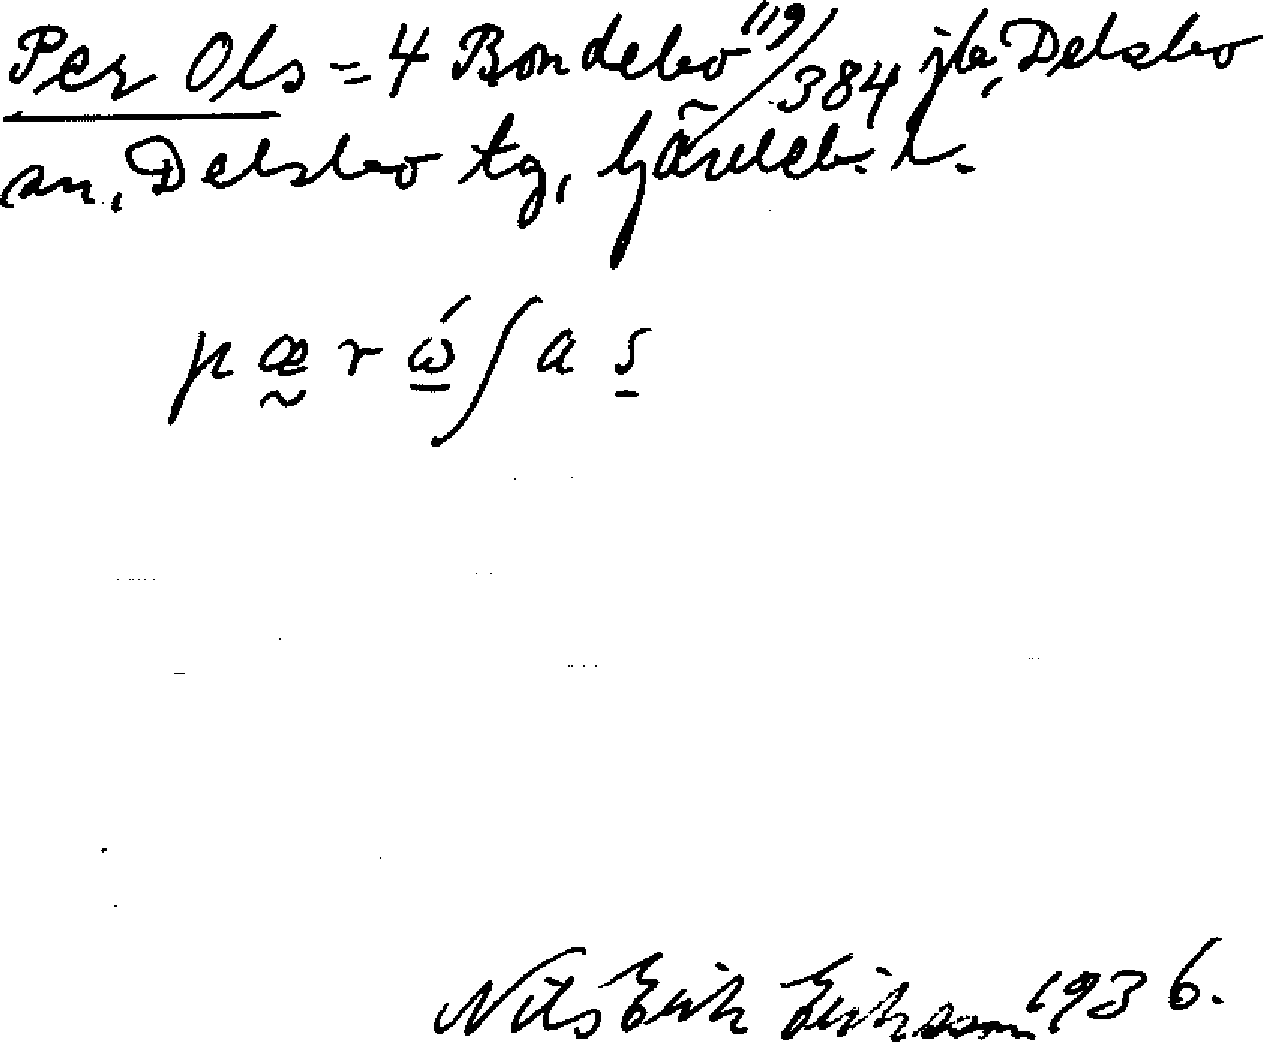 Per Ols = 4 Bondebo 119/384 jb, Delsbo
sn, Delsbo tg, Gävleb. l.
pæ̰rώ̲ʃas̲
Nils Erik Erikson 1936.